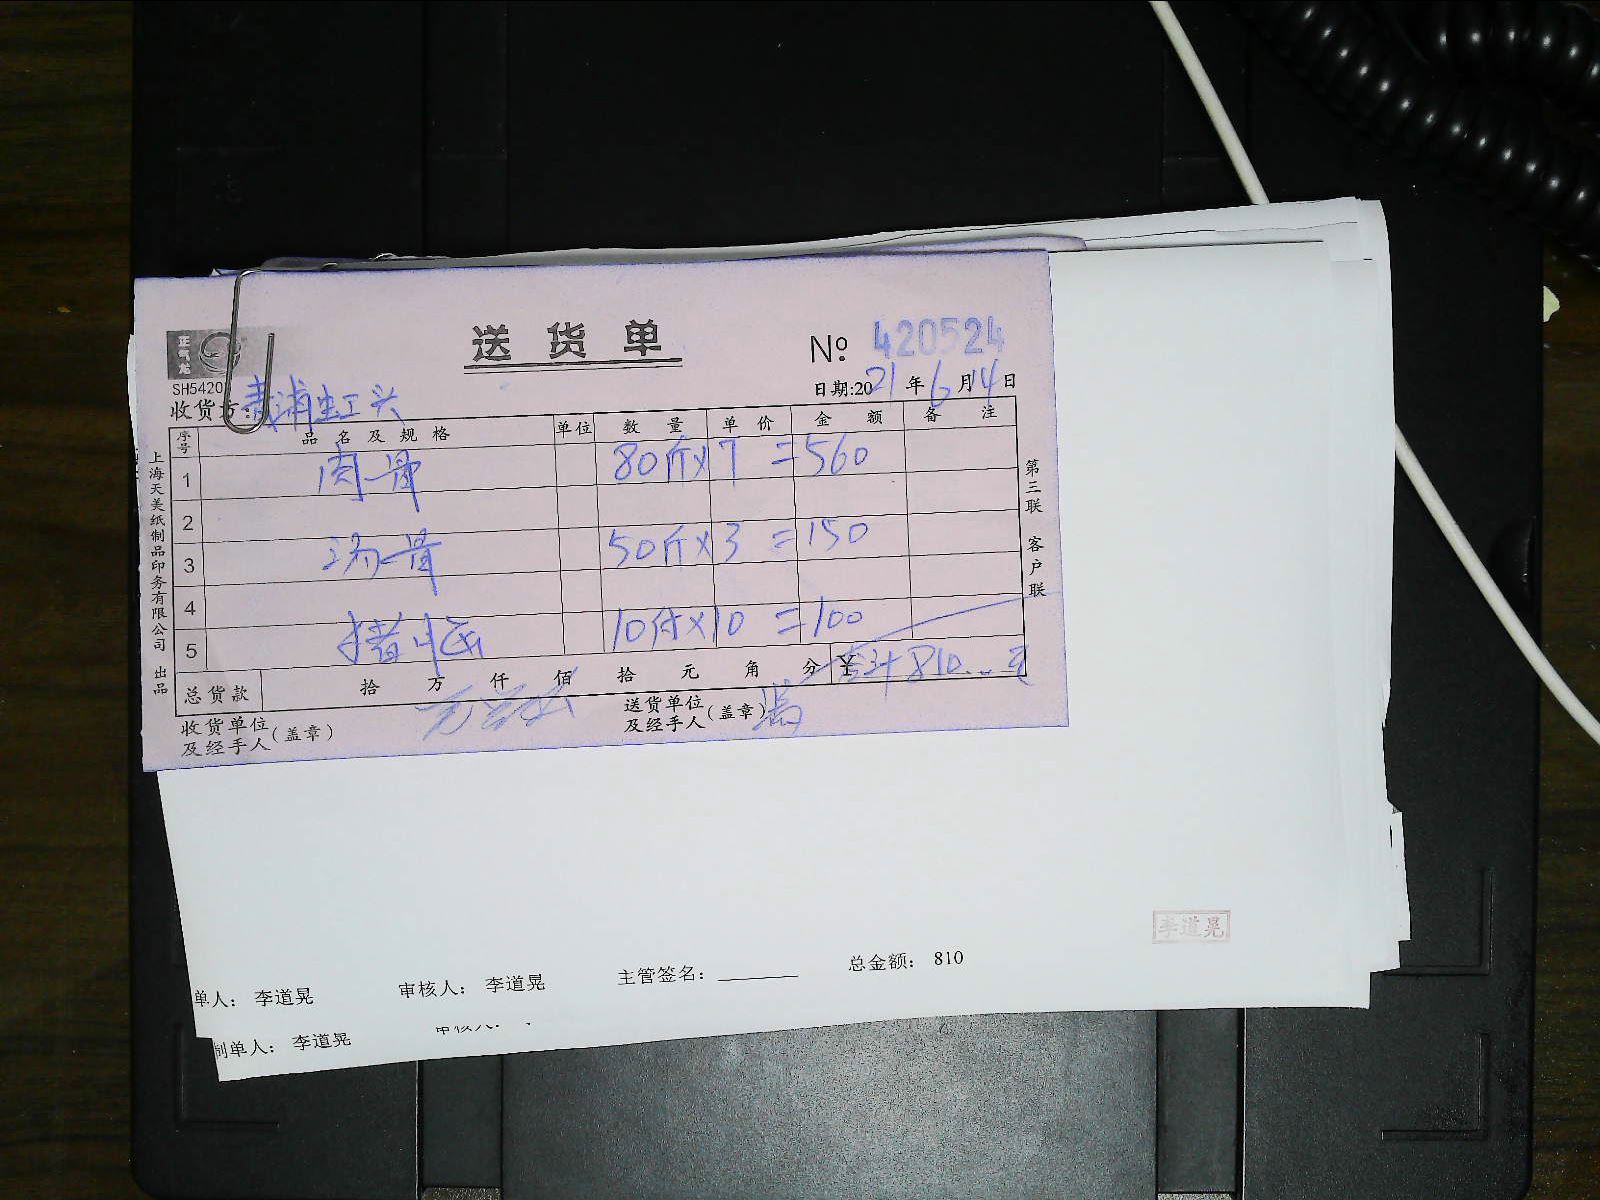 正气龙
SH5420
送货单
№ 420524
日期:2021年6月14日
收货方:黄浦虹头
序号 品名及规格 单位 数量 单价 金额 备注
1 肉骨 80斤×7=560
2
3 汤骨 50斤×3=150
4
5 猪小 10付×10=100
总货款 拾 万 仟 佰 拾 元 角 分 ¥ 合计810...元
收货单位及经手人(盖章)
送货单位及经手人(盖章)
上海天美纸制品印务有限公司 出品
第三联 客户联
李道晃
单人: 李道晃 审核人: 李道晃 主管签名: 总金额: 810
制单人: 李道晃 审核人: